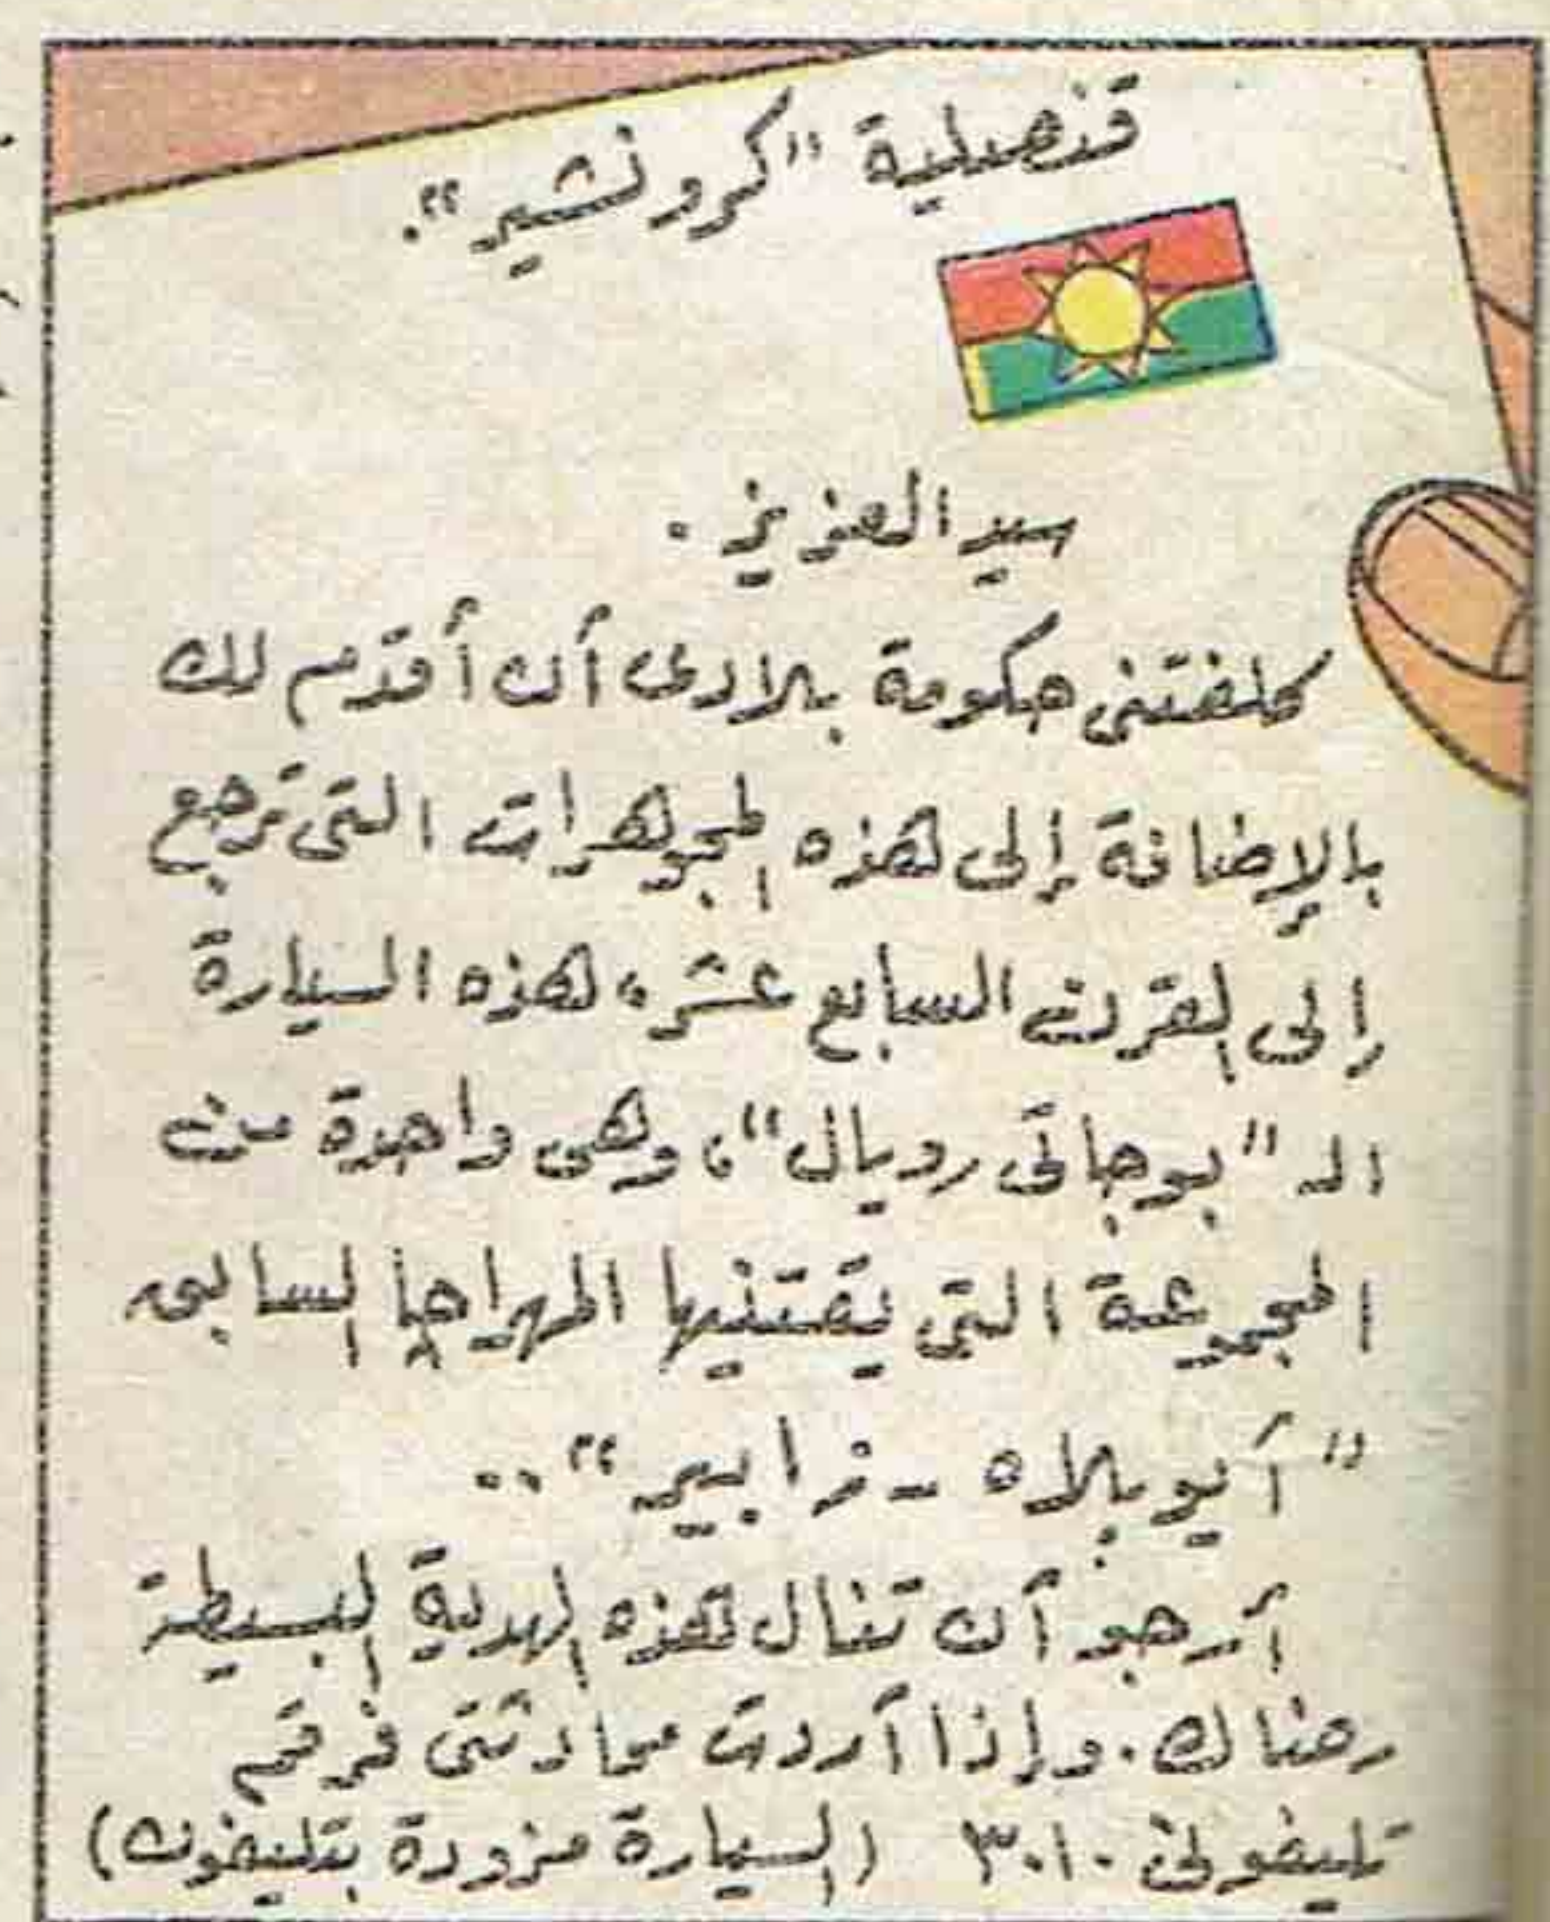 قنصلية "كرونشير".
سيد العزيز.
كلفتنى حكومة بلادى أن أقدّم لك
بالإضافة إلى هذه المجوهرات التى ترجع
إلى القرن السابع عشر، هذه السيارة
الـ "بوجاتى رويال"، وهى واحدة من
المجموعة التى يقتنيها المهراجا السابق
"أيوبلاه - زابير"..
أرجو أن تنال هذه الهدية البسيطة
رضاك. وإذا أردت محادثتى فرقم
تليفونى ٣٠١٠ (السيارة مزودة بتليفون)